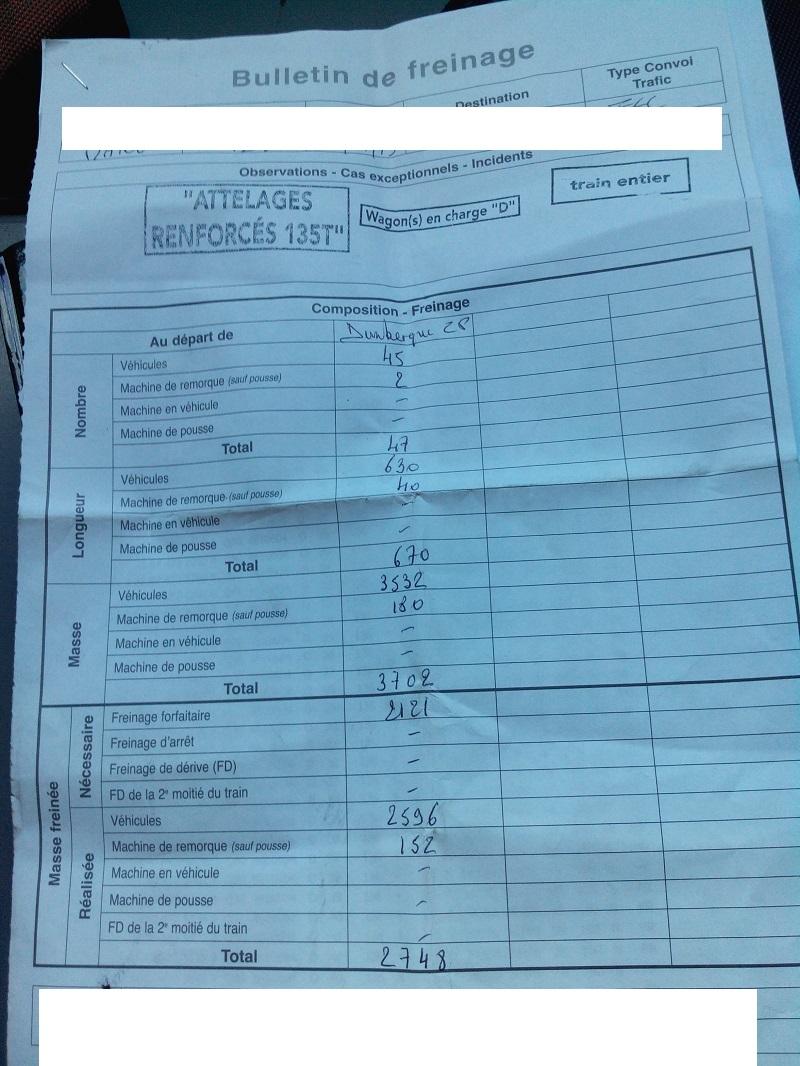 Bulletin de freinage
Destination
Type Convoi
Trafic
Observations - Cas exceptionnels - Incidents
"ATTELAGES
RENFORCÉS 135T"
Wagon(s) en charge "D"
train entier
Composition - Freinage
Au départ de Dunkerque
Nombre
Véhicules 45
Machine de remorque (sauf pousse) 2
Machine en véhicule -
Machine de pousse -
Total 47
Longueur
Véhicules 630
Machine de remorque (sauf pousse) 40
Machine en véhicule -
Machine de pousse -
Total 670
Masse
Véhicules 3532
Machine de remorque (sauf pousse) 180
Machine en véhicule -
Machine de pousse -
Total 3702
Masse freinée
Nécessaire
Freinage forfaitaire 2121
Freinage d'arrêt -
Freinage de dérive (FD) -
FD de la 2e moitié du train -
Réalisée
Véhicules 2596
Machine de remorque (sauf pousse) 152
Machine en véhicule -
Machine de pousse -
FD de la 2e moitié du train -
Total 2748